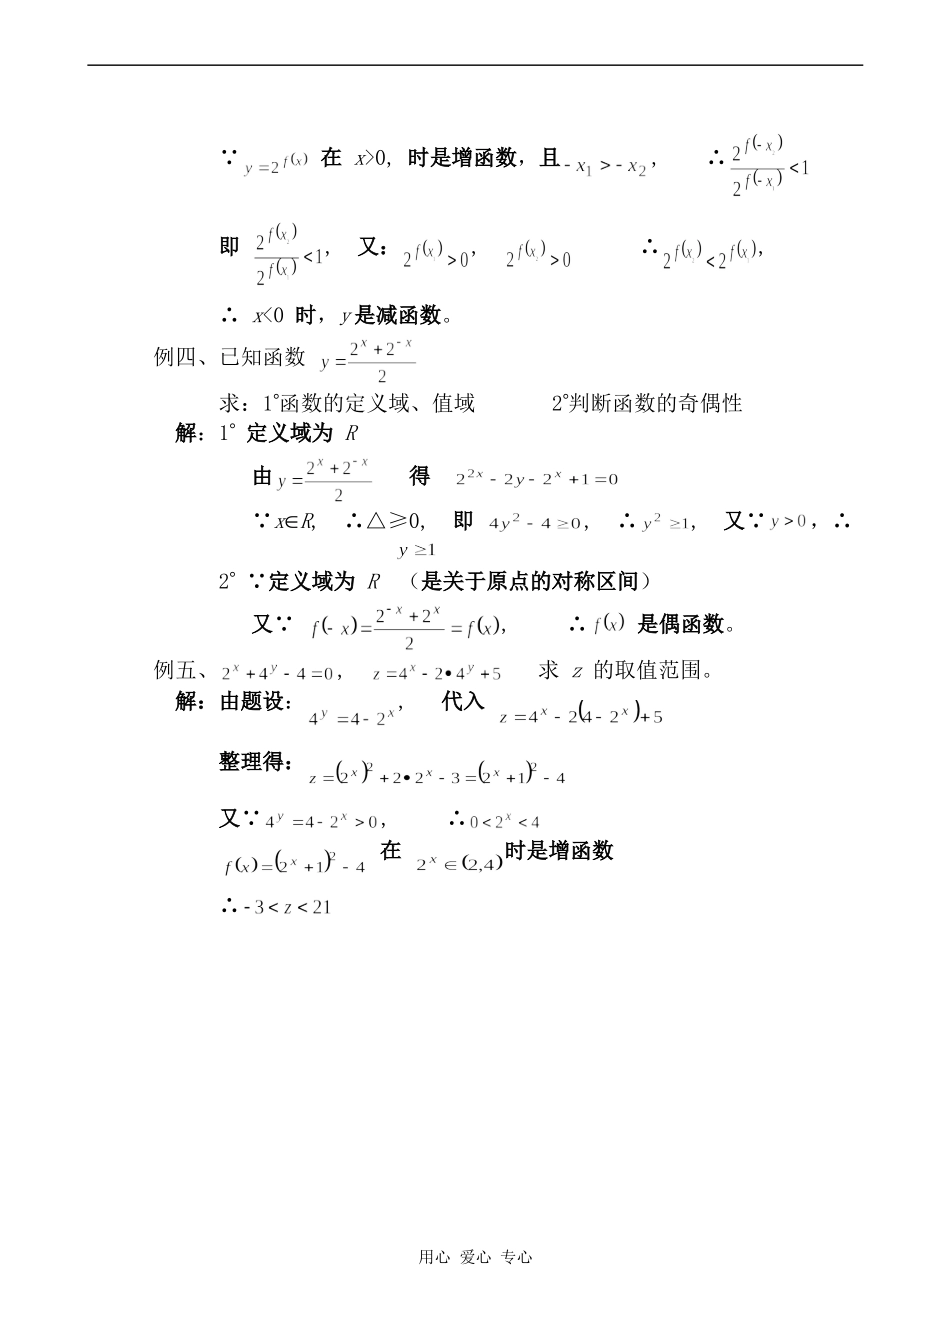 ∵ y=2^{f(x)} 在 x>0, 时是增函数，且 -x₁>-x₂， ∴ 2^{f(-x₂)}/2^{f(-x₁)}<1
即 2^{f(x₂)}/2^{f(x₁)}<1， 又：2^{f(x₁)}>0， 2^{f(x₂)}>0 ∴ 2^{f(x₂)}<2^{f(x₁)}，
∴ x<0 时，y 是减函数。
例四、已知函数 y=(2^x+2^{-x})/2
求：1°函数的定义域、值域 2°判断函数的奇偶性
解：1° 定义域为 R
由 y=(2^x+2^{-x})/2 得 2^{2x}-2y-2^x+1=0
∵x∈R, ∴△≥0, 即 4y²-4≥0, ∴y²≥1, 又∵y>0，∴
y≥1
2° ∵定义域为 R （是关于原点的对称区间）
又∵ f(-x)=(2^{-x}+2^x)/2=f(x), ∴f(x) 是偶函数。
例五、2^x+4^y-4=0， z=4^x-2•4^y+5 求 z 的取值范围。
解：由题设：4^y=4-2^x， 代入 z=4^x-2(4-2^x)+5
整理得：z=(2^x)²+2•2^x-3=(2^x+1)²-4
又∵4^y=4-2^x>0， ∴0<2^x<4
f(x)=(2^x+1)²-4 在 2^x∈(2,4)时是增函数
∴-3<z<21
用心 爱心 专心